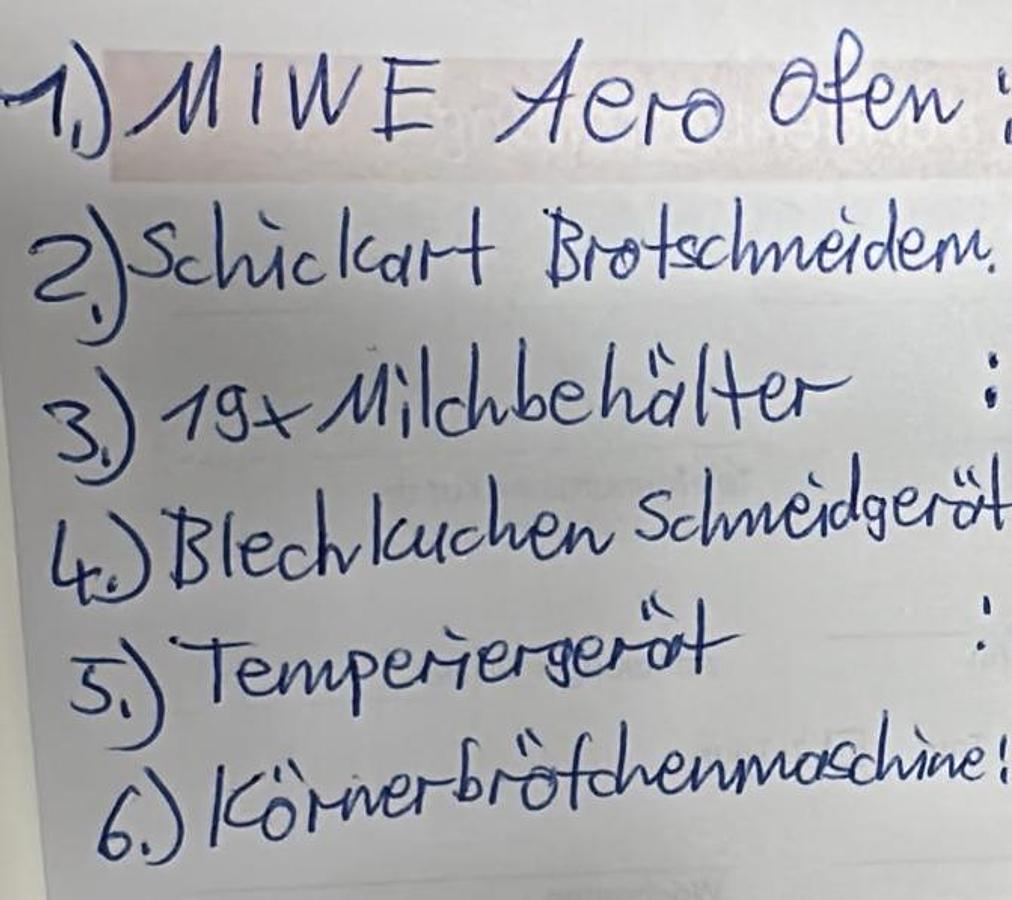 1.) MIWE Aero Ofen :
2.) Schickart Brotschneidem.
3.) 19x Milchbehälter :
4.) Blechkuchen Schneidgerät
5.) Temperiergerät :
6.) Körnerbrötchenmaschine: